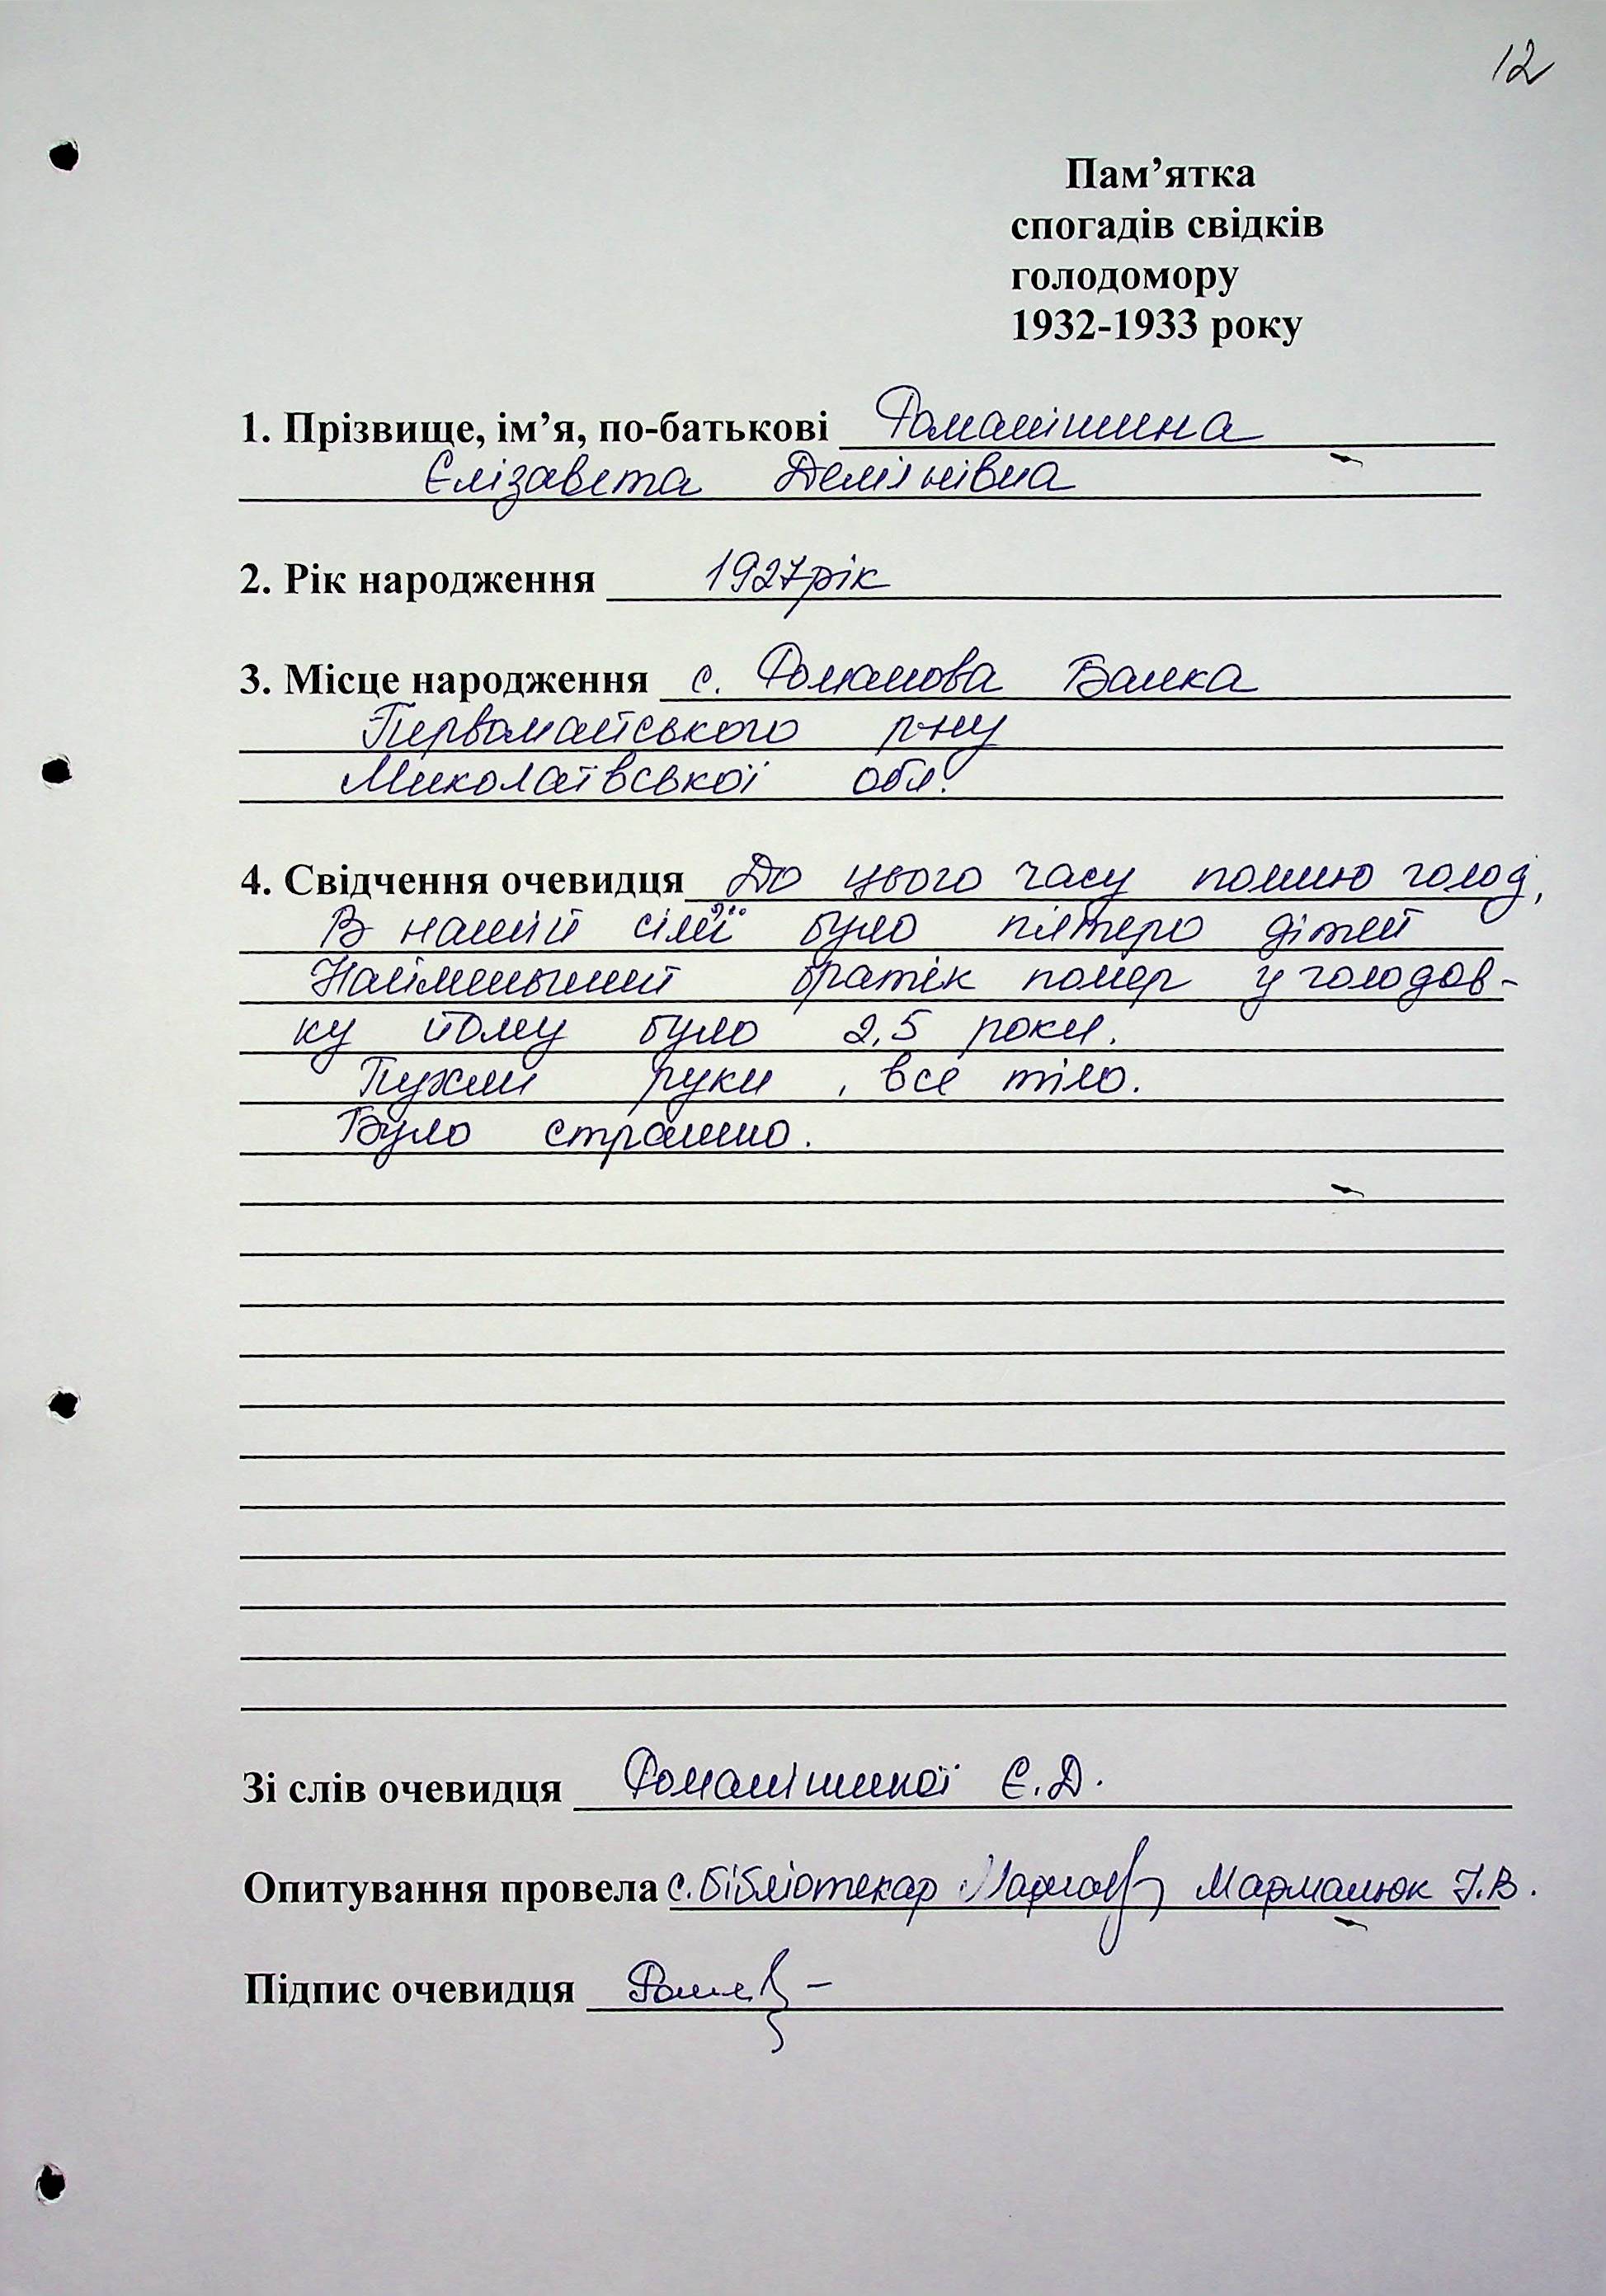 12
Пам’ятка
спогадів свідків
голодомору
1932-1933 року
1. Прізвище, ім’я, по-батькові Романішина
Єлізавета Демʼянівна
2. Рік народження 1927рік
3. Місце народження с. Романова Балка
Первомайського р-ну
Миколаївської обл.
4. Свідчення очевидця До цього часу помню голод,
В нашій сімʼї було пʼятеро дітей
Найменьший братік помер у голодов-
ку йому було 2,5 роки.
Пухли руки, все тіло.
Було страшно.
Зі слів очевидця Романішиної Є.Д.
Опитування провела с.бібліотекар Мармалюк І.В.
Підпис очевидця